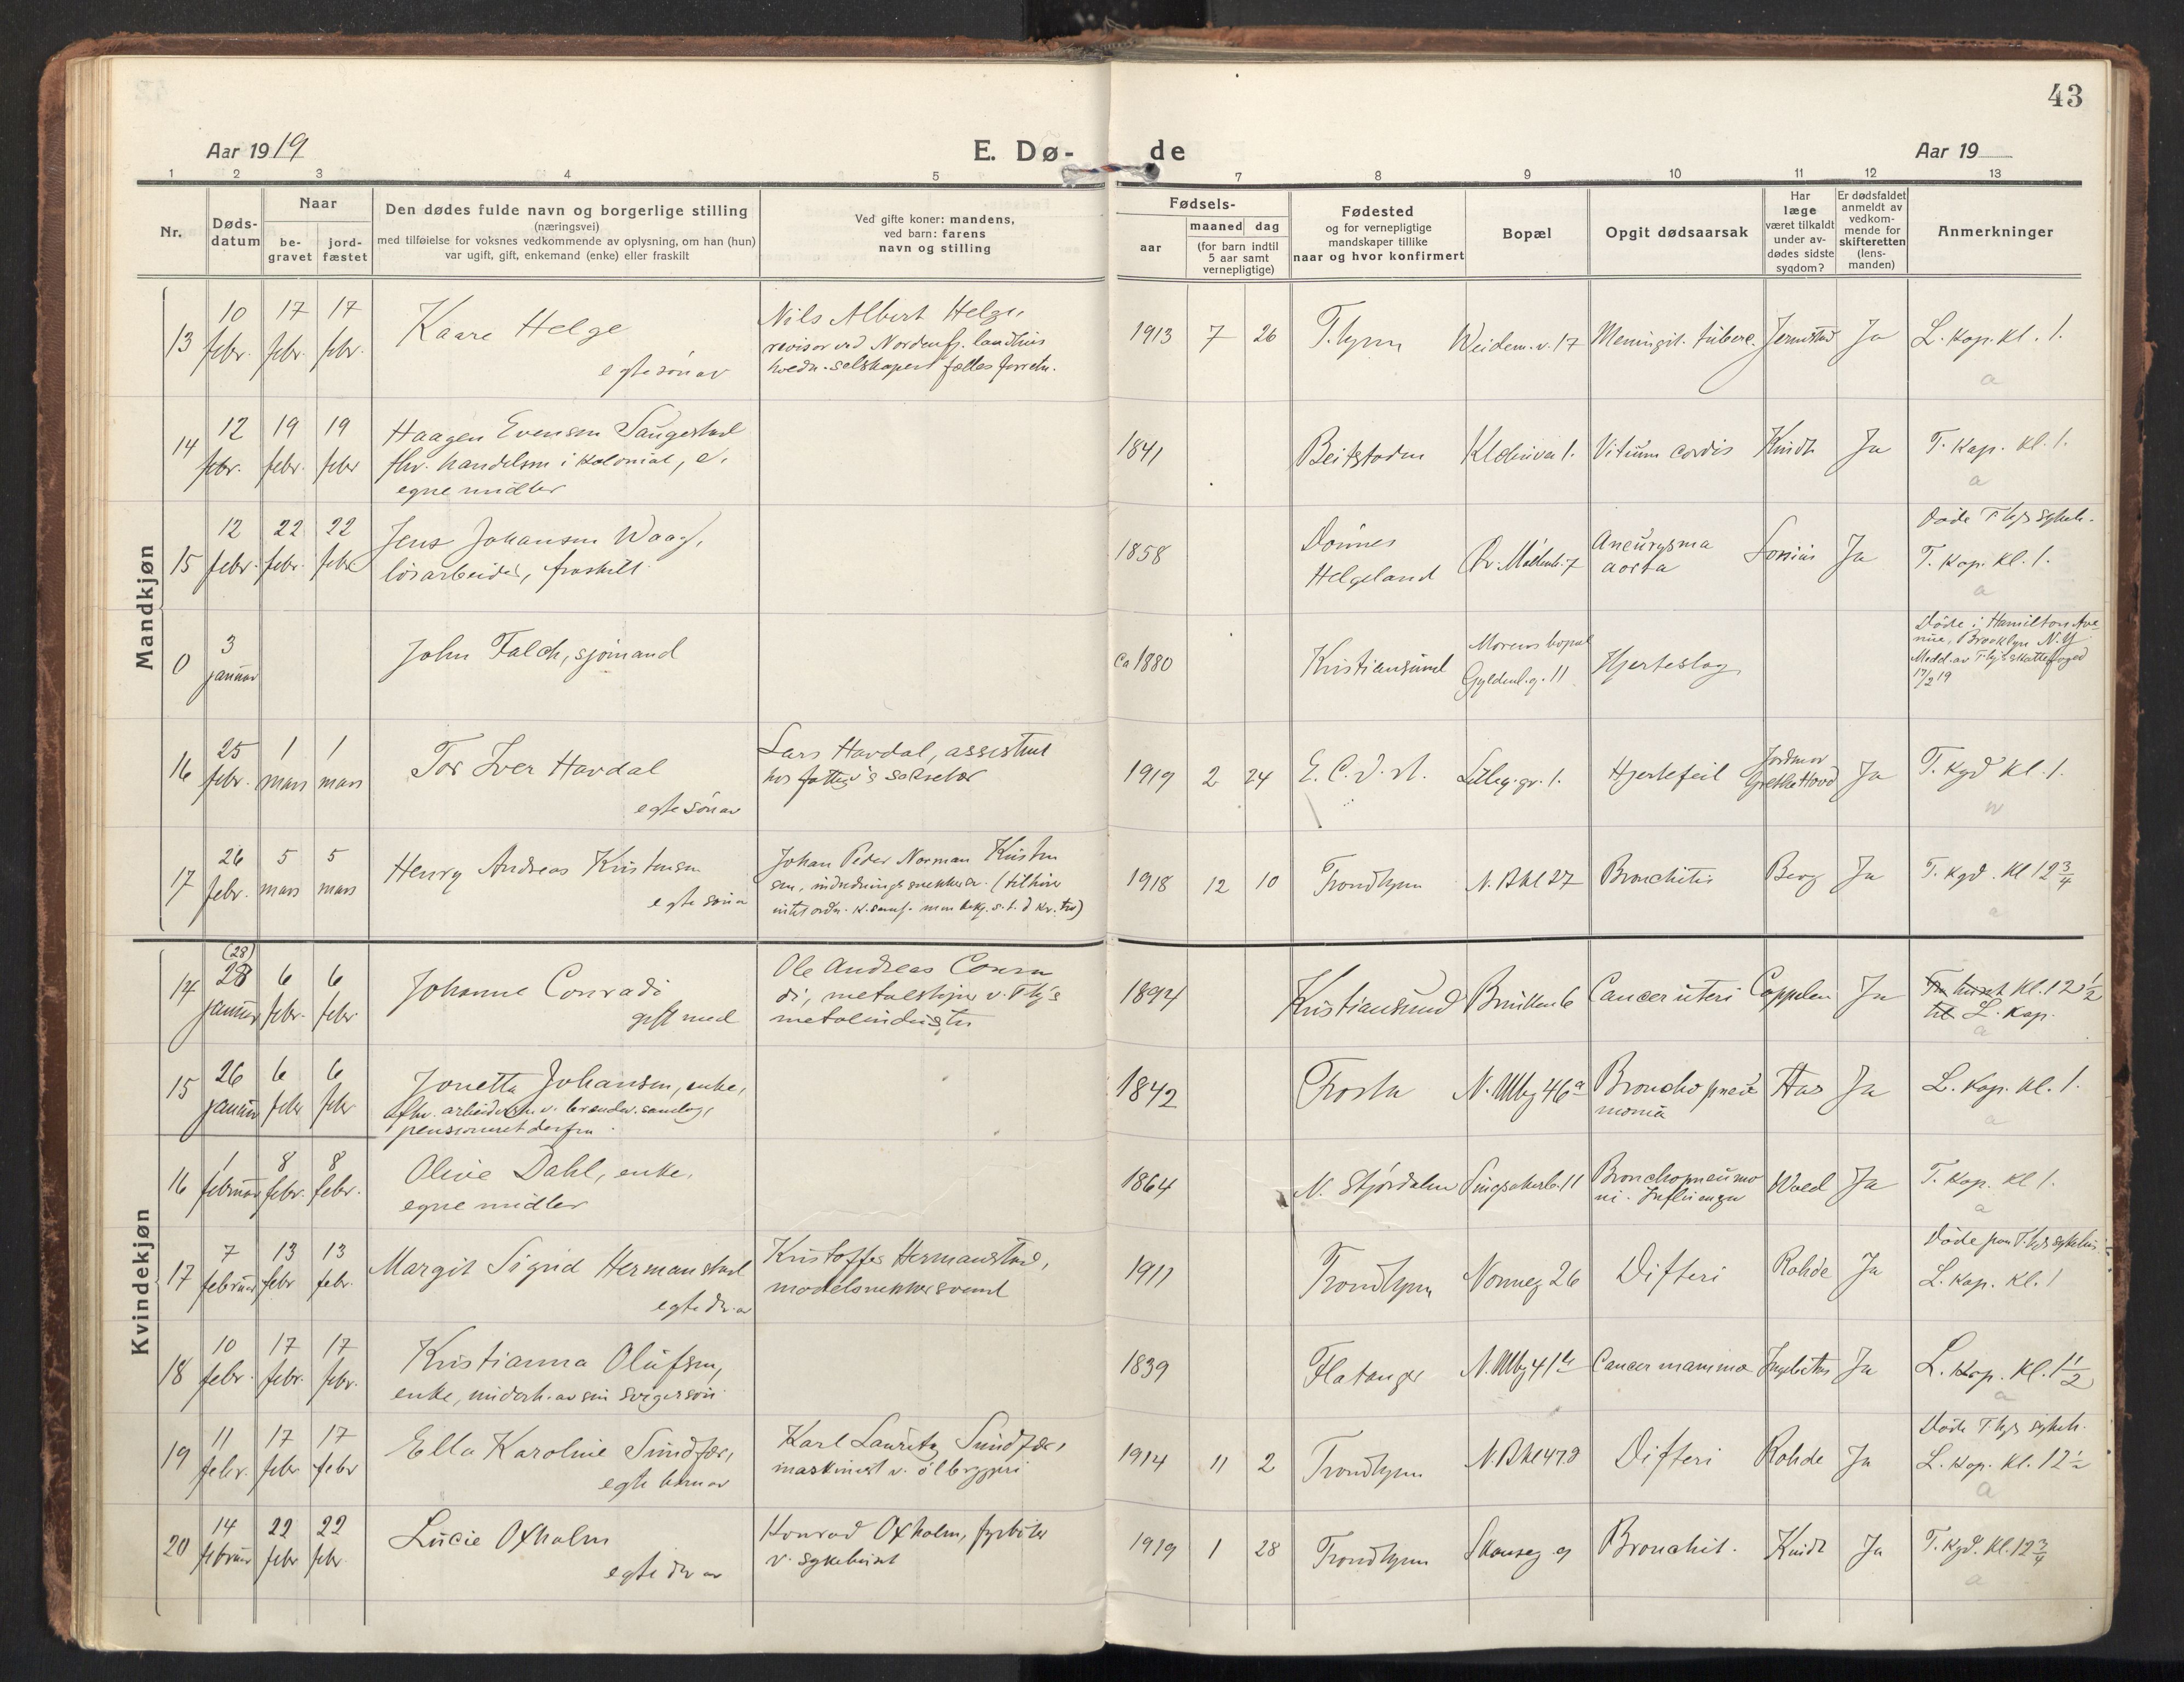 43
Aar 1919
E. Dø- de
Aar 19
1 2 3 4 5 7 8 9 10 11 12 13
Nr.
Døds-
datum
Naar
be-
gravet
jord-
fæstet
Den dødes fulde navn og borgerlige stilling
(næringsvei)
med tilføielse for voksnes vedkommende av oplysning, om han (hun)
var ugift, gift, enkemand (enke) eller fraskilt
Ved gifte koner: mandens,
ved barn: farens
navn og stilling
Fødsels-
aar
maaned dag
(for barn indtil
5 aar samt
vernepligtige)
Fødested
og for vernepligtige
mandskaper tillike
naar og hvor konfirmert
Bopæl
Opgit dødsaarsak
Har
læge
været tilkaldt
under av-
dødes sidste
sygdom?
Er dødsfaldet
anmeldt av
vedkom-
mende for
skifteretten
(lens-
manden)
Anmerkninger
Mandkjøn
13
10 febr.
17 febr.
17 febr.
Kaare Helge
egte søn av
Nils Albert Helge,
revisor ved Nordenfj. landhus
selskapers fælles
1913 7 26
T.hjem
Weidem.v. 17
Meningit. tuberc.
Jermstad
Ja
L. Kap. Kl. 1.
a
14
12 febr.
19 febr.
19 febr
Haagen Evensen Saugestad
fhv. handelsm i kolonial, e.
egne midler
1841
Beitstaden
1.
Vitium cordis
Kindt
Ja
T. Kap. Kl. 1.
a
15
12 febr.
22 febr.
22 febr
Jens Johansen Waag,
løsarbeider, fraskilt.
1858
Dønnes
Helgeland
7
Aneurysma
aorta
Lossius
Ja
Døde T.hjs sykeh.
T. Kap. Kl. 1.
a
0
3
januar
John Falch, sjømand
Ca 1880
Kristiansund
Morens bopæl
Gyldenl.g. 11
Hjerteslag
Døde i Hamilton Ave
nue, Brooklyn N.Y.
Medd. av T.hjs skattefoged
17/2 19
16
25 febr.
1 mars
1 mars
Tor Iver Havdal
egte søn av
Lars Havdal, assistent
hos fattigv's sekretær
1919 2 24
E. C. D. st.
1.
Hjertefeil
Jordmor
Grethe Hovd
Ja
T. Kgd Kl. 1.
17
26 febr.
5 mars
5 mars
Henry Andreas Kristensen
egte søn a
Johan Peder Norman Kristen
sen, indredningssnekker. (tilhører
intet ordn. k.samf. men bekj. s. t. d kr. tro)
1918 12 10
Trondhjem
N. Bkl 27
Bronchitis
Berg
Ja
T. Kgd. Kl 12 3/4
a
Kvindekjøn
14
(28)
28 januar
6 febr.
6 febr.
Johanne Conradi
gift med
Ole Andreas Conra
di, v. T.hj's
metalindustri
1894
Kristiansund
6
Cancer uteri
Coppelen
Ja
Fra huset Kl. 12 1/2
til L. Kap.
a
15
26 januar
6 febr
6 febr
Jonetta Johansen, enke,
fhv. arbeiderske v. brændev.samlag,
pensionert derfra.
1842
Frosta
N. Allé 46 a
Bronchopneu
monia
Aas
Ja
L. Kap. Kl. 1.
a
16
1 februar
8 febr.
8 febr.
Oline Dahl, enke,
egne midler
1864
N. Stjørdalen
Singsakerb. 11
Bronchopneumo
ni. Influenza
Ja
T. Kap. Kl 1.
a
17
7 februar
13 febr
13 febr.
Margit Sigrid Hermanstad
egte dr. a
Kristoffer Hermanstad,
modelsnekkersvend
1911
Trondhjem
Nonneg 26
Difteri
Rohde
Ja
Døde paa T.hjs sykehus
L. Kap. Kl. 1
18
10 febr.
17 febr.
17 febr.
Kristianna Olufsen,
enke, underh. av sin svigersøn.
1839
Flatanger
N. Allé 41 b
Cancer mamma
Ja
L. Kap. Kl. 1 1/2
a
19
11 febr.
17 febr
17 febr
Ella Karoline Sundfær,
egte barn av
Karl Lauritz Sundfær,
maskinist v. ølbryggeri
1914 11 2
Trondhjem
N. Bkl 47
Difteri
Rohde
Ja
Døde T.hjs sykeh.
L. Kap. Kl. 12 1/2
a
20
14 februar
22 febr
22 febr.
Lucie Oxholm
egte dr av
Konrad Oxholm, fyrbøter
v. sykehuset
1919 1 28
Trondhjem
Bronchit.
Kindt
Ja
T. Kgd. Kl. 12 3/4
a